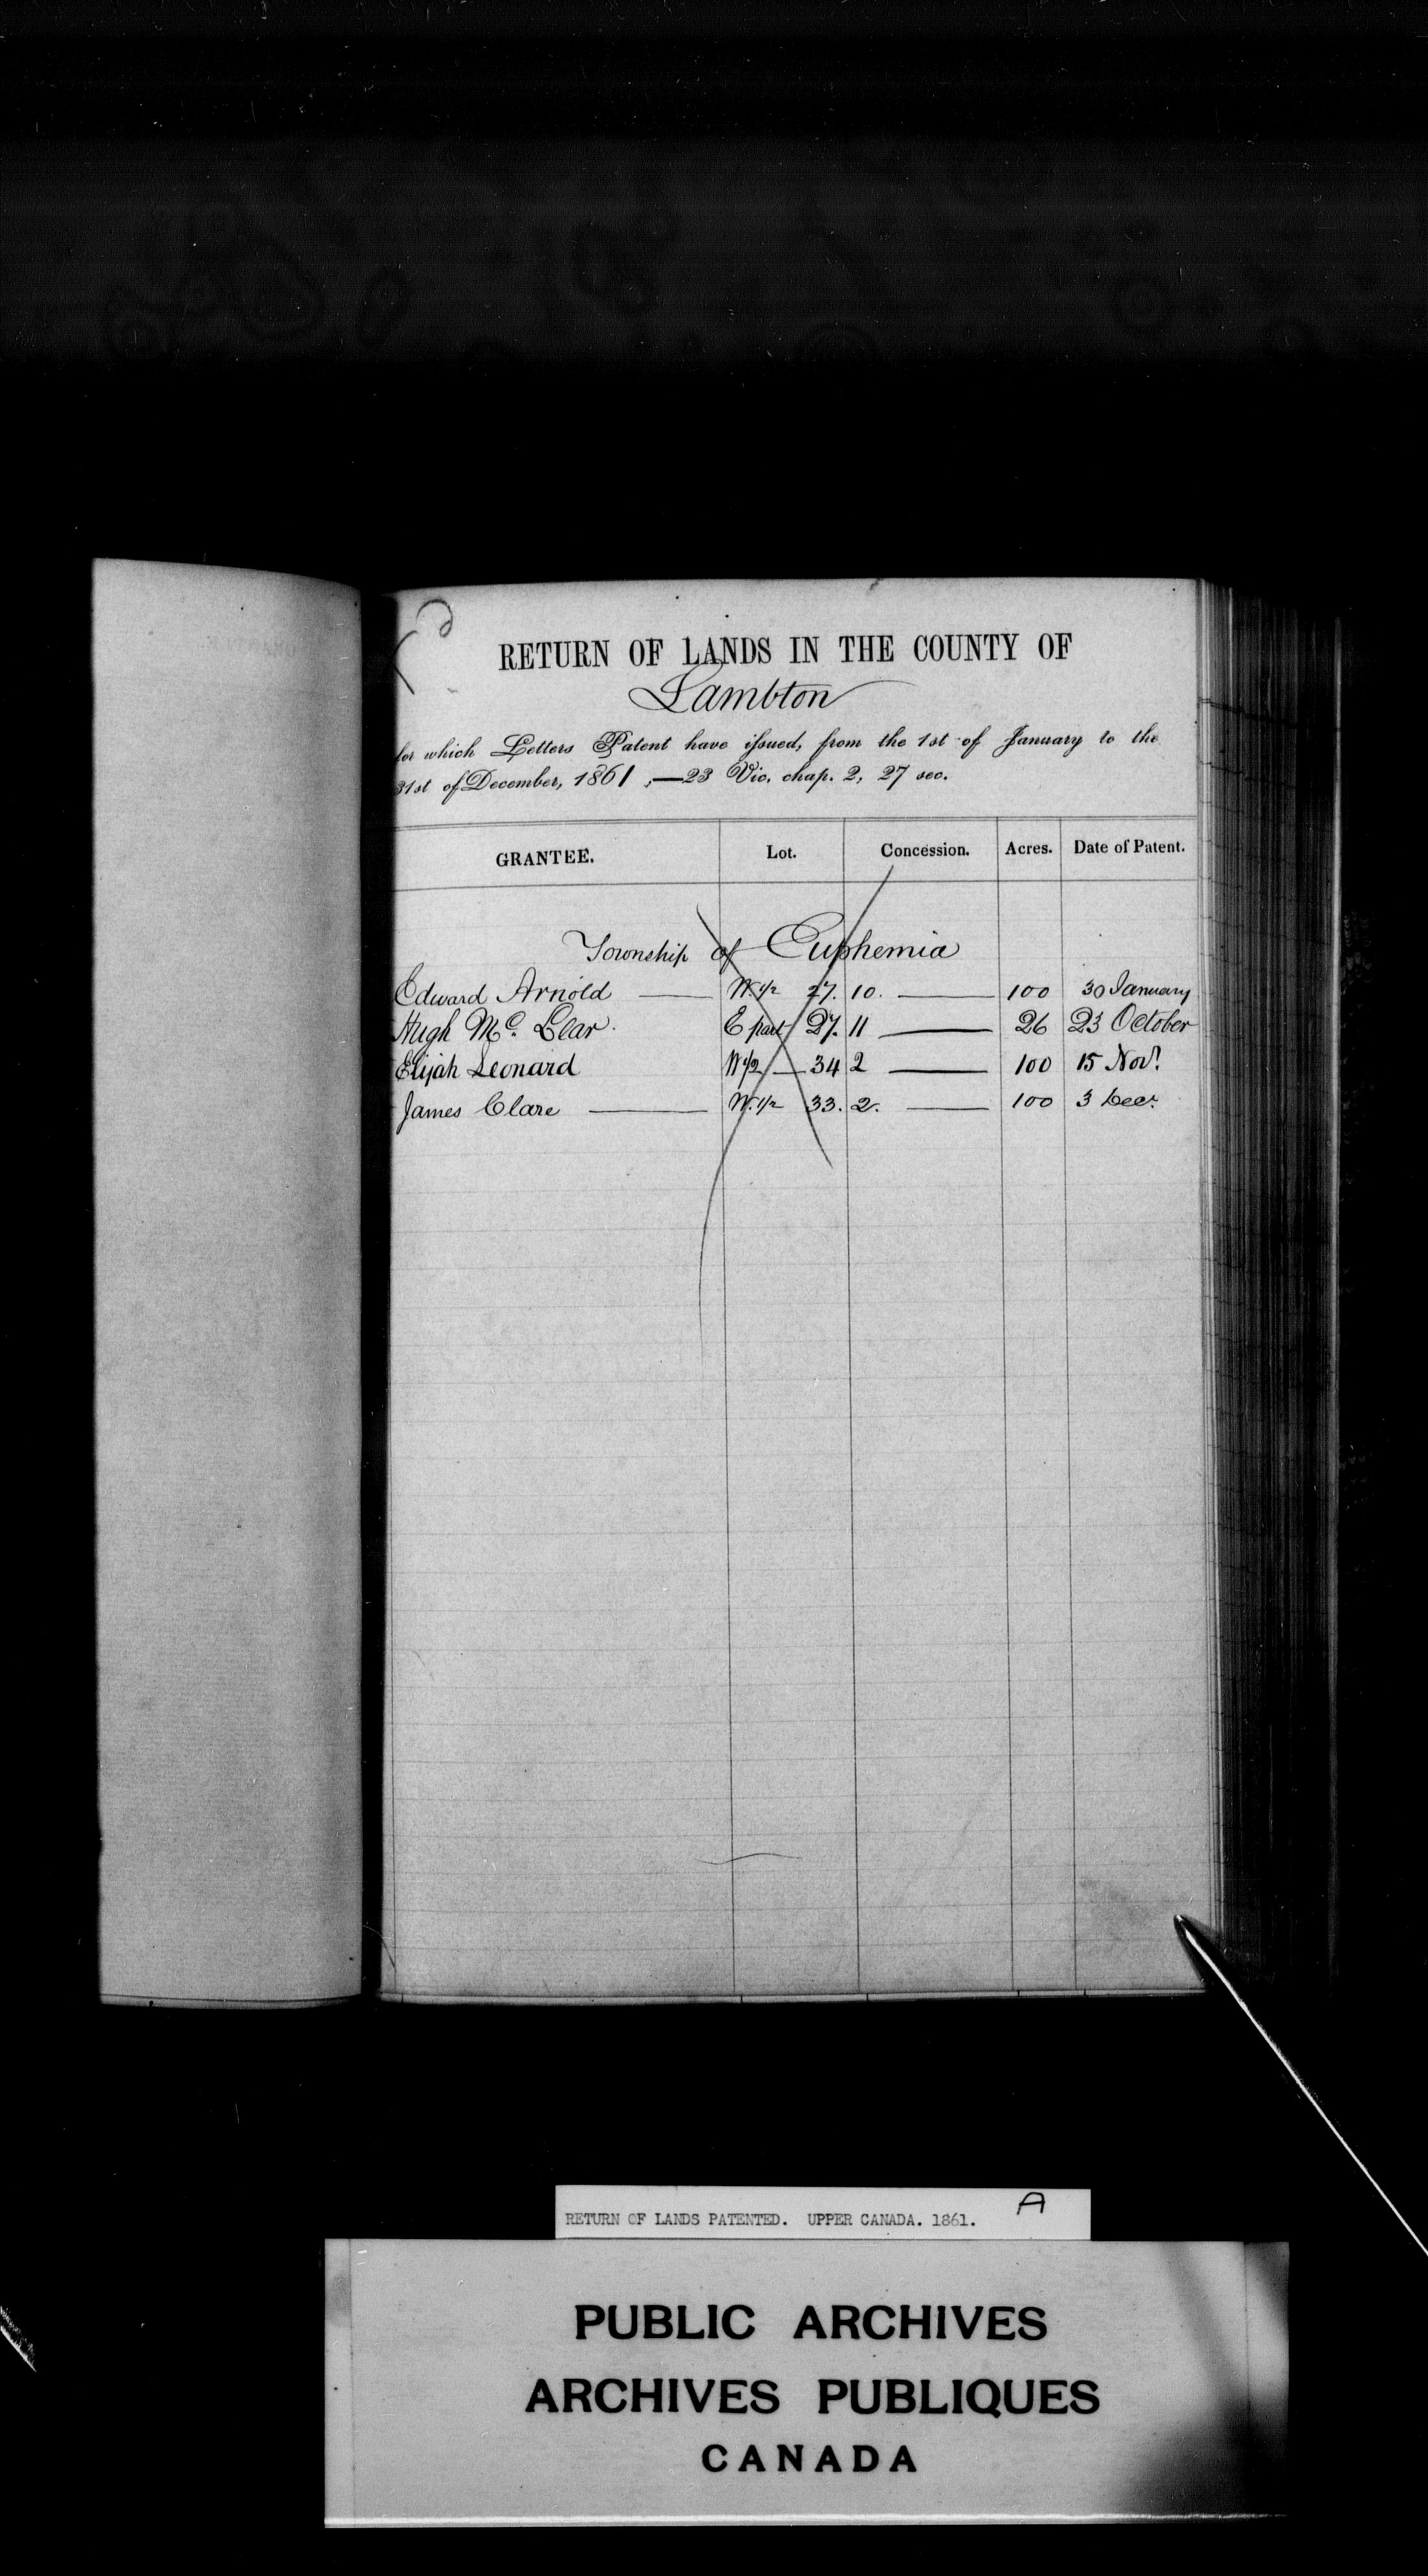 RETURN OF LANDS IN THE COUNTY OF
Lambton
for which Letters Patent have issued, from the 1st of January to the
31st of December, 1861,—23 Vic. chap. 2, 27 sec.
GRANTEE. Lot. Concession. Acres. Date of Patent.
Township of Euphemia
Edward Arnold — W. 1/2 27. 10. — 100 30 January
Hugh Mc. Lear. E part 27. 11 — 26 23 October
Elijah Leonard W 1/2 — 34 2 — 100 15 Nov.
James Clare — W. 1/2 33. 2. — 100 3 Decr.
RETURN OF LANDS PATENTED. UPPER CANADA. 1861. A
PUBLIC ARCHIVES
ARCHIVES PUBLIQUES
CANADA